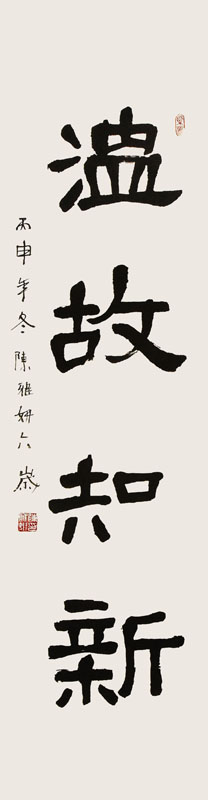 溫故知新
丙申年冬陳雅妍六歲